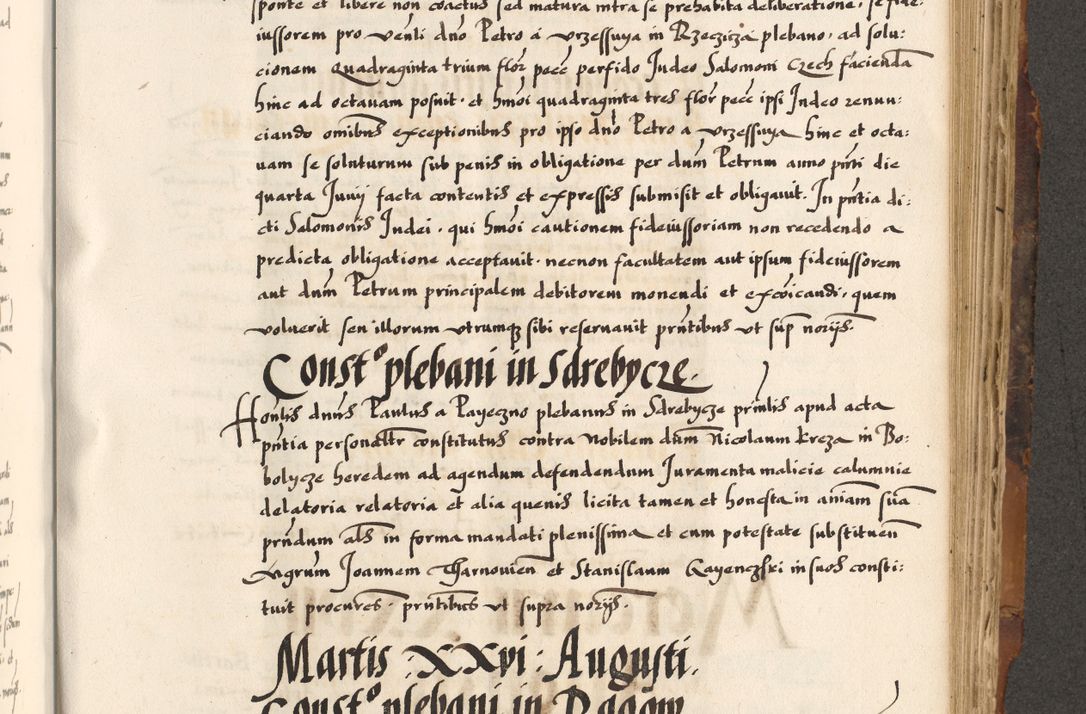 sponte et libere non coactus sed matura intra se prehabita deliberatione, se fide-
iussorem pro venli dno Petro a vrzessuya in Rzeczicza plebano, ad solu:
cionem Quadraginta trium flor pecc perfido Judeo Salomoni Czech facienda
hinc ad octauam posuit. et hmoi quadraginta tres flor pecc ipsi Judeo renun:
ciando omibus exceptionibus pro ipso dno Petro a vrzessuya hinc et octa:
uam se soluturum sub penis in obligatione per dum Petrum anno pnti die
quarta Junij facta contentis et expressis submisit et obligauit. In pntia di:
cti Salomonis Judei. qui hmoi cautionem fideiussoriam non recedendo a
predicta obligatione acceptauit. necnon facultatem aut ipsum fideiussorem
aut dum Petrum principalem debitorem monendi et excoicandi, quem
voluerit seu illorum vtrumq sibi reseruauit pntibus vt sup norijs.
Const° plebani in Sdrebycze.
Honlis dnus Paulus a Payeczno plebanus in Sdrebycze primlis apud acta
pntia personalr constitutus contra Nobilem dum Nicolaum kreza in Bo:
bolycze heredem ad agendum defendendum Juramenta malicie calumnie
delatoria relatoria et alia queuis licita tamen et honesta in aniam sua
prndum als in forma mandati plenissima et cum potestate substituen
Mgrum Joannem Tharnouien et Stanislaum Rayenczski in suos consti:
tuit procures. pntibus vt supra norijs.
Martis : XXVI : Augusti.
Const° plebani in Dagow